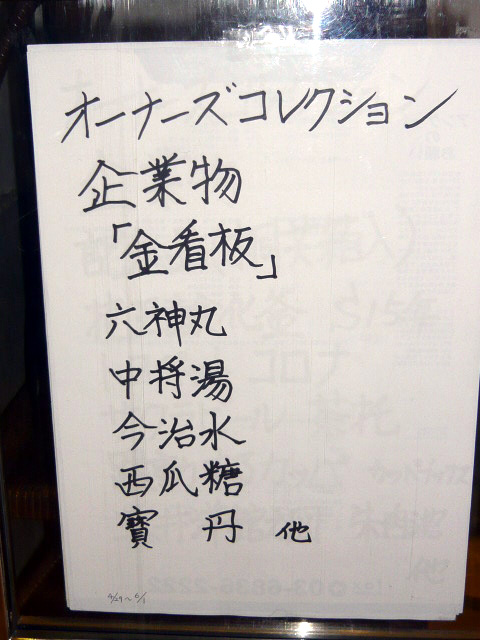 オーナーズコレクション
企業物
「金看板」
六神丸
中将湯
今治水
西瓜糖
寳 丹 他